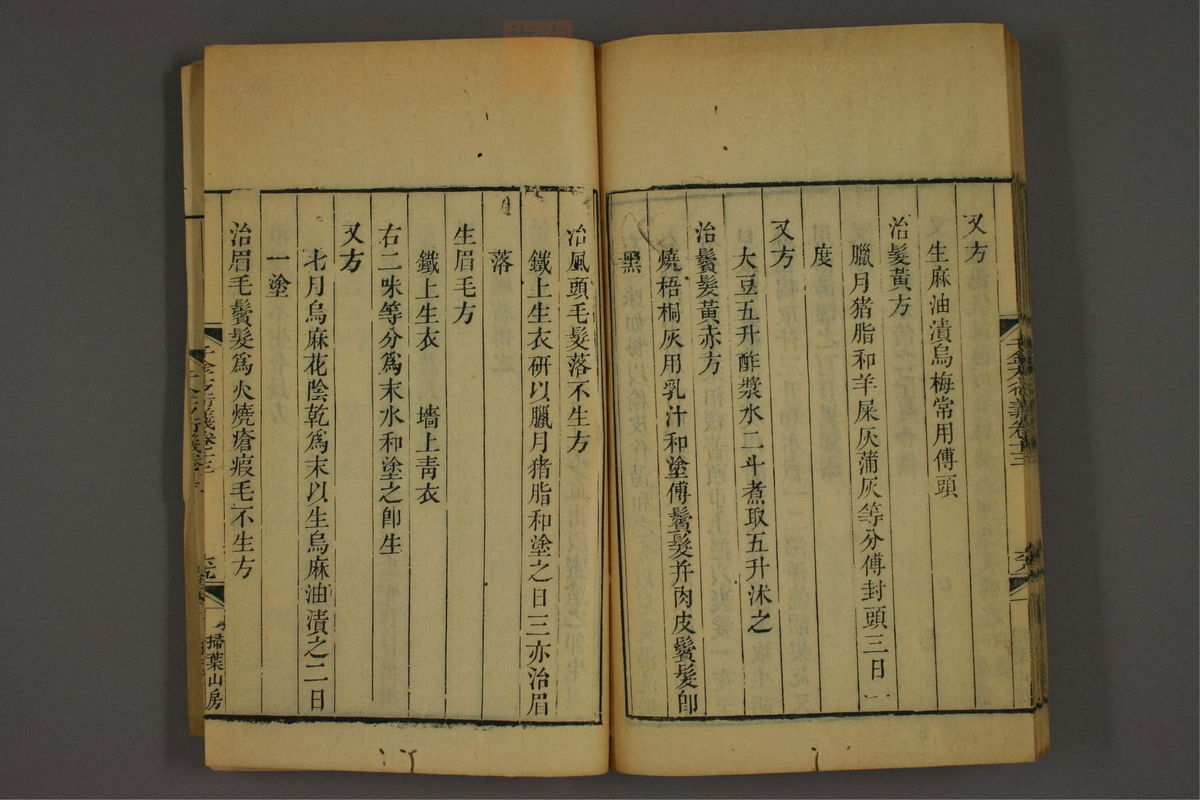 又方
生麻油漬烏梅常用傅頭
治髮黃方
臘月猪脂和羊屎灰蒲灰等分傅封頭三日一
度
又方
大豆五升酢漿水二斗煮取五升沐之
治鬢髮黃赤方
燒梧桐灰用乳汁和塗傅鬢髮并肉皮鬢髮卽
黑
治風頭毛髮落不生方
鐵上生衣研以臘月猪脂和塗之日三亦治眉
落
生眉毛方
鐵上生衣 墻上靑衣
右二味等分爲末水和塗之卽生
又方
七月烏麻花陰乾爲末以生烏麻油漬之二日
一塗
治眉毛鬢髮爲火燒瘡瘢毛不生方
千金方衍義卷十三
掃葉山房